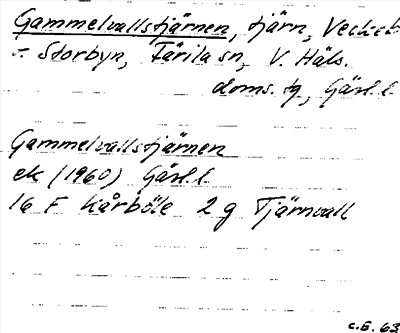 Gammelvallstjärnen, tjärn, Veckeb
- Storbyn, Färila sn, V. Häls.
doms. tg, Gävl. l.
Gammelvallstjärnen
ek (1960) Gävl. l.
16 F Kårböle 2 g Tjärnvall
C.E. 63